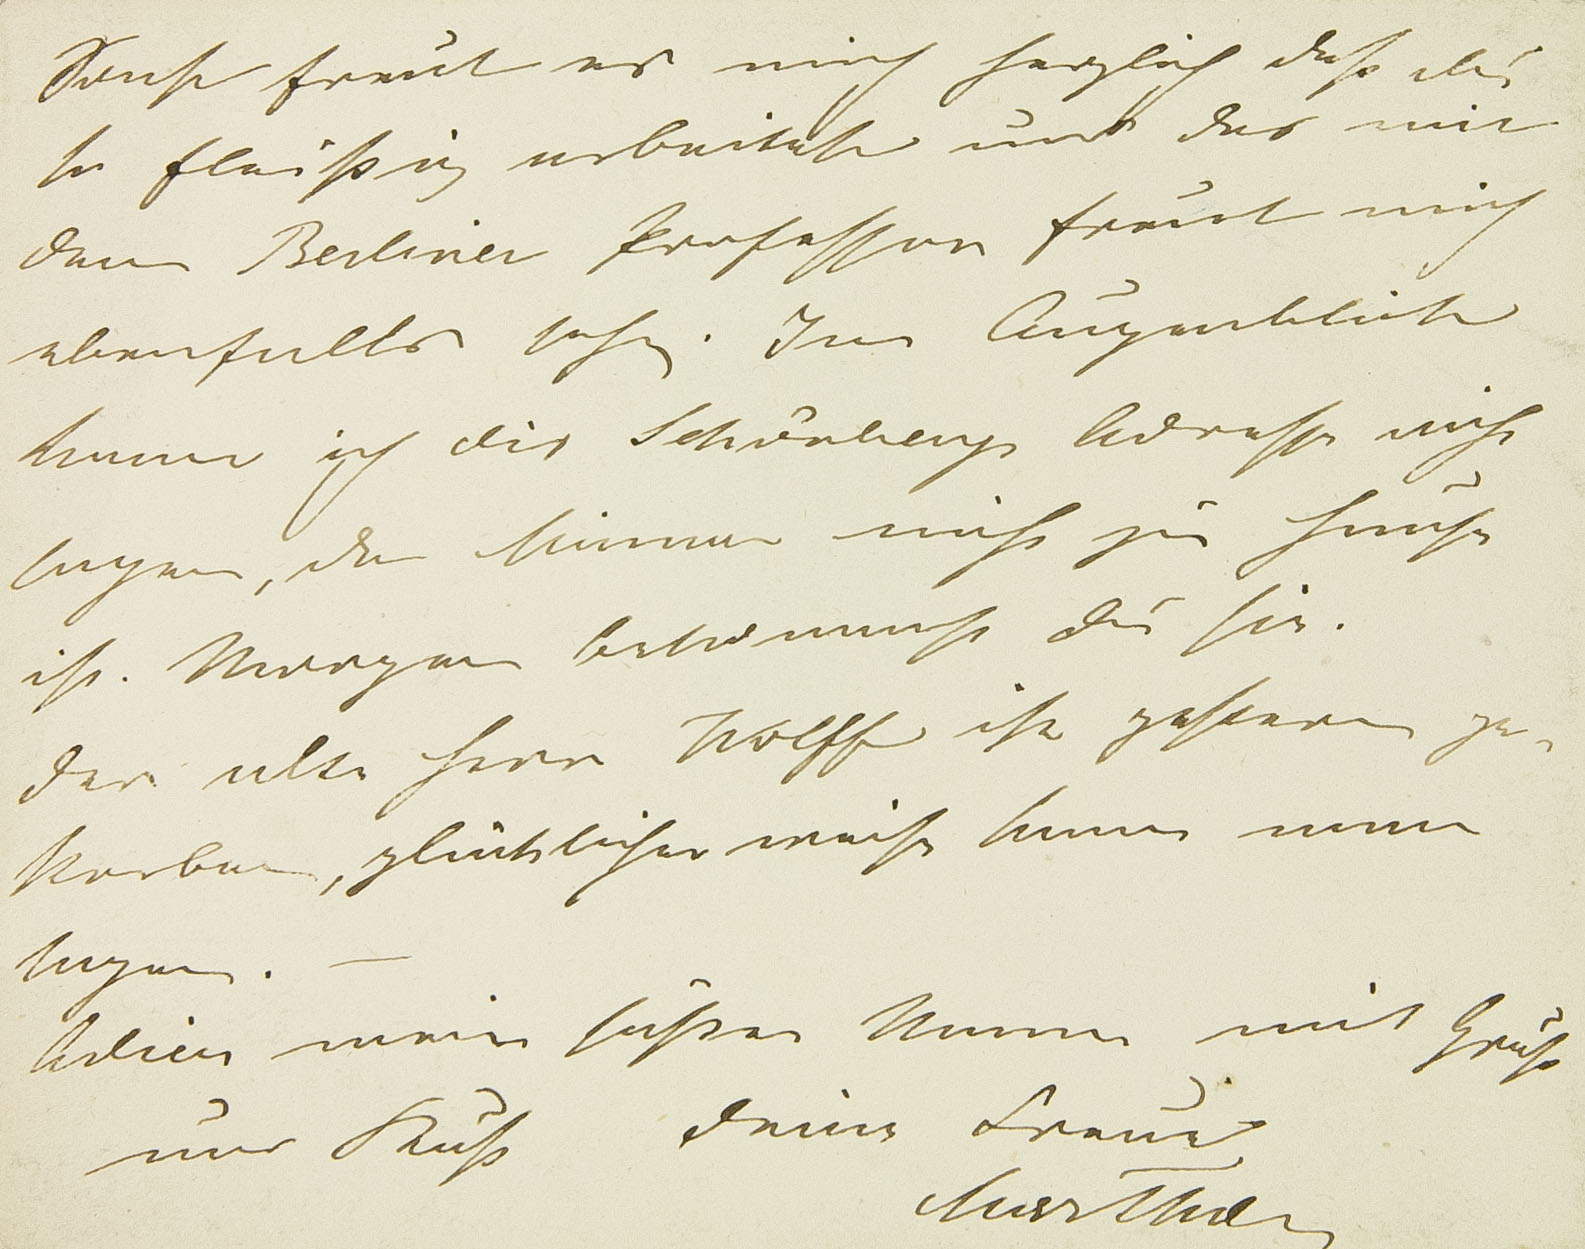 Sonst freut es mich herzlich daß du
so fleißig arbeitest und das mit
dem Berliner Professor freut mich
ebenfalls sehr. Im Augenblick
kann ich die Schönbergs Adresse nicht
sagen, da Minna nicht zu Hause
ist. Morgen bekommst du sie.
der alte Herr Wolff ist gestern ge-
storben, glücklicher weise kann man
sagen. —
Adieu mein süßer Mann mit Gruß
und Kuß deine treue
Martha